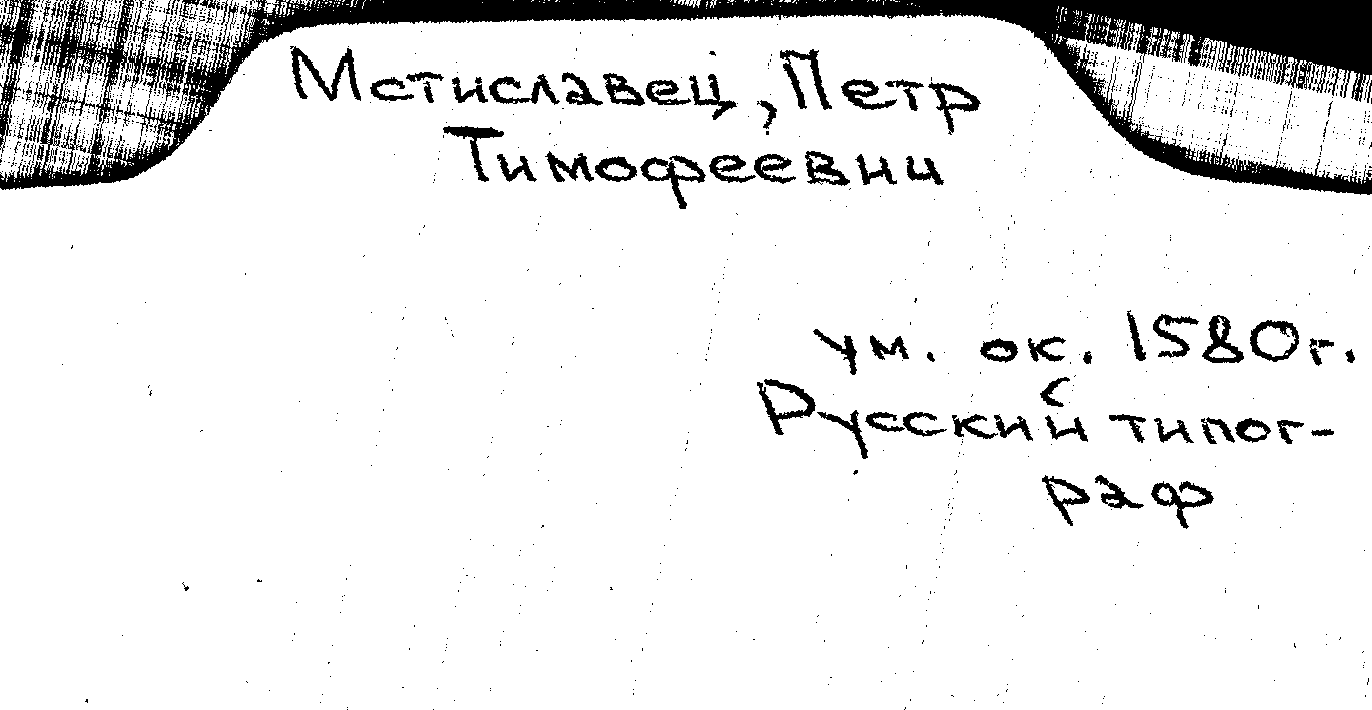 Мстиславец, Петр
Тимофеевич
ум. ок. 1580 г.
Русский типог-
раф